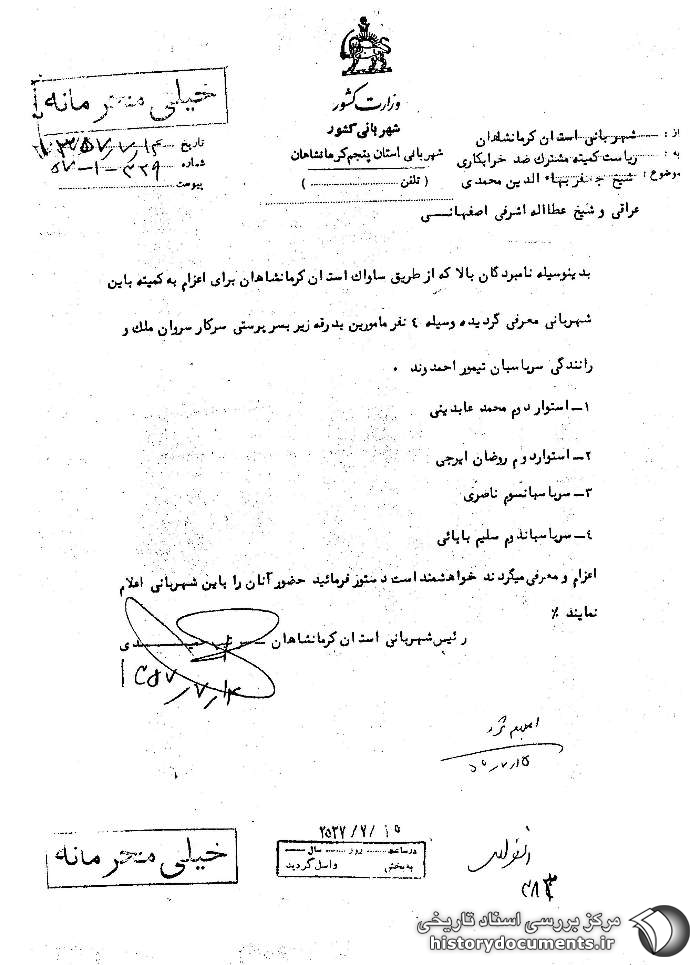 وزارت کشور
شهربانی کشور
شهربانی استان پنجم کرمانشاهان
( تلفن .................... )
خیلی محرمانه
تاریخ ۱۳۵۷/۷/۱۴
شماره ۳۲۹-۱-۵۷
پیوست
از: شهربانی استان کرمانشاهان
به: ریاست کمیته مشترک ضد خرابکاری
موضوع: شیخ جعفر بهاء الدین محمدی
عراقی و شیخ عطااله اشرفی اصفهانی
بدینوسیله نامبردگان بالا که از طریق ساواک استان کرمانشاهان برای اعزام به کمیته باین
شهربانی معرفی گردیده وسیله ٤ نفر مامورین بدرقه زیر بسرپرستی سرکار سروان ملک و
رانندگی سرپاسبان تیمور احمدوند ۰
۱- استوار دوم محمد عابدینی
۲- استوار دوم روضان ایرجی
۳- سرپاسبانسوم ناصری
٤- سرپاسباندوم سلیم بابائی
اعزام و معرفی میگردند خواهشمند است دستور فرمائید حضور آنان را باین شهربانی اعلام
نمایند ٪
رئیس شهربانی استان کرمانشاهان
۱۳۵۷/۷/۱۴
۲۵۳۷/۷/۱۵
در ساعت ........ روز ........ سال ........
به بخش واصل گردید
خیلی محرمانه
مرکز بررسی اسناد تاریخی
historydocuments.ir